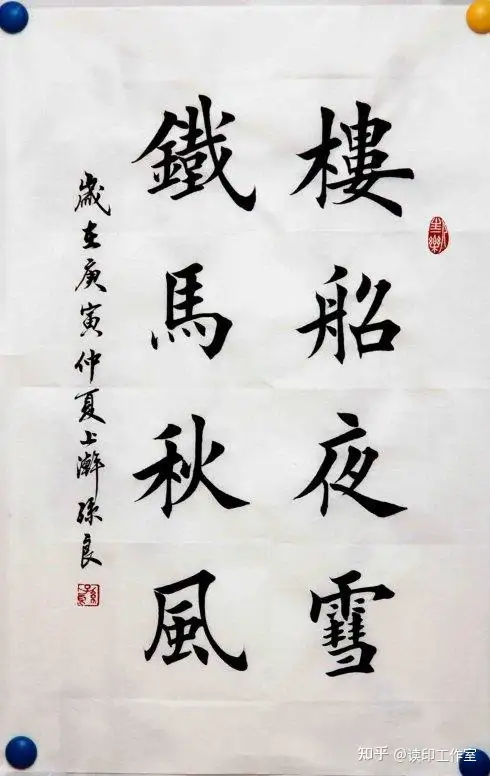 樓船夜雪
鐵馬秋風
歲在庚寅仲夏上澣孫良
知乎 @读印工作室